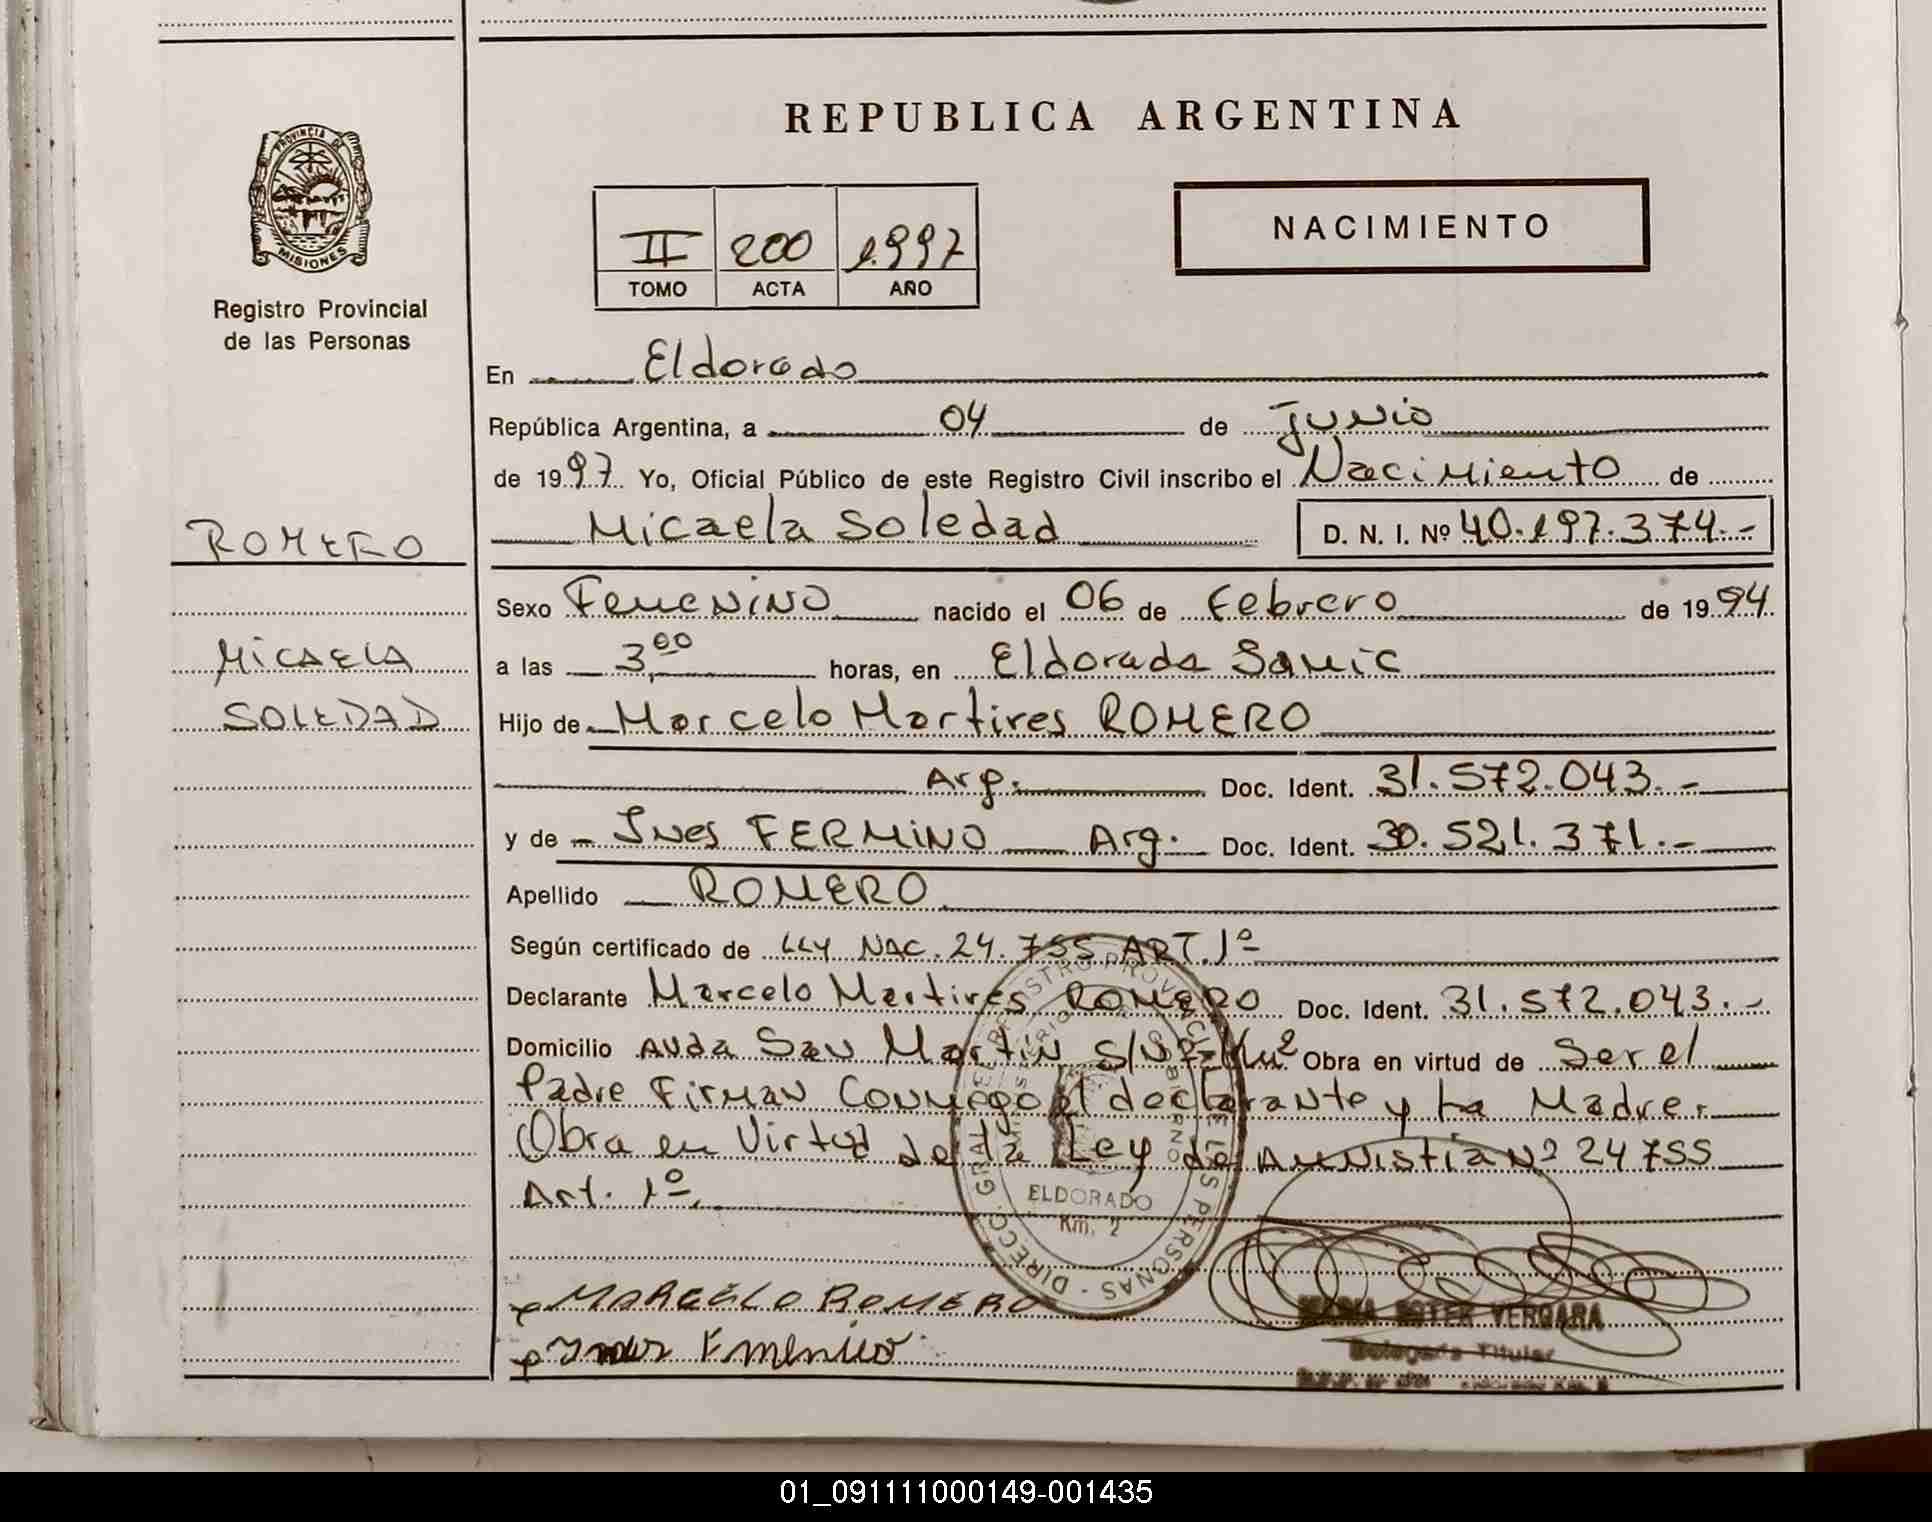 REPUBLICA ARGENTINA
PROVINCIA DE MISIONES
Registro Provincial
de las Personas
II 200 1.997
TOMO ACTA AÑO
NACIMIENTO
En Eldorado
República Argentina, a 04 de Junio
de 1997 Yo, Oficial Público de este Registro Civil inscribo el Nacimiento de
Micaela Soledad D. N. I. Nº 40.197.374.-
ROMERO
MICAELA
SOLEDAD
Sexo Femenino nacido el 06 de Febrero de 1994
a las 3,00 horas, en Eldorado Samic
Hijo de Marcelo Martires ROMERO
Arg. Doc. Ident. 31.572.043.-
y de - Ines FERMINO Arg. Doc. Ident. 30.521.371.-
Apellido ROMERO
Según certificado de LEY NAC. 24.755 ART. 1º
Declarante Marcelo Martires ROMERO Doc. Ident. 31.572.043.-
Domicilio Avda San Martin S/Nº Km2 Obra en virtud de Ser el
Padre Firman Conmigo el declarante y La Madre.
Obra en Virtud de la Ley de AMNistia Nº 24755
Art. 1º.
DIRECC. GRAL. DEL REGISTRO PROVINCIAL DE LAS PERSONAS
ELDORADO
Km. 2
MARCELO ROMERO
VERGARA
Delegada Titular
01_091111000149-001435